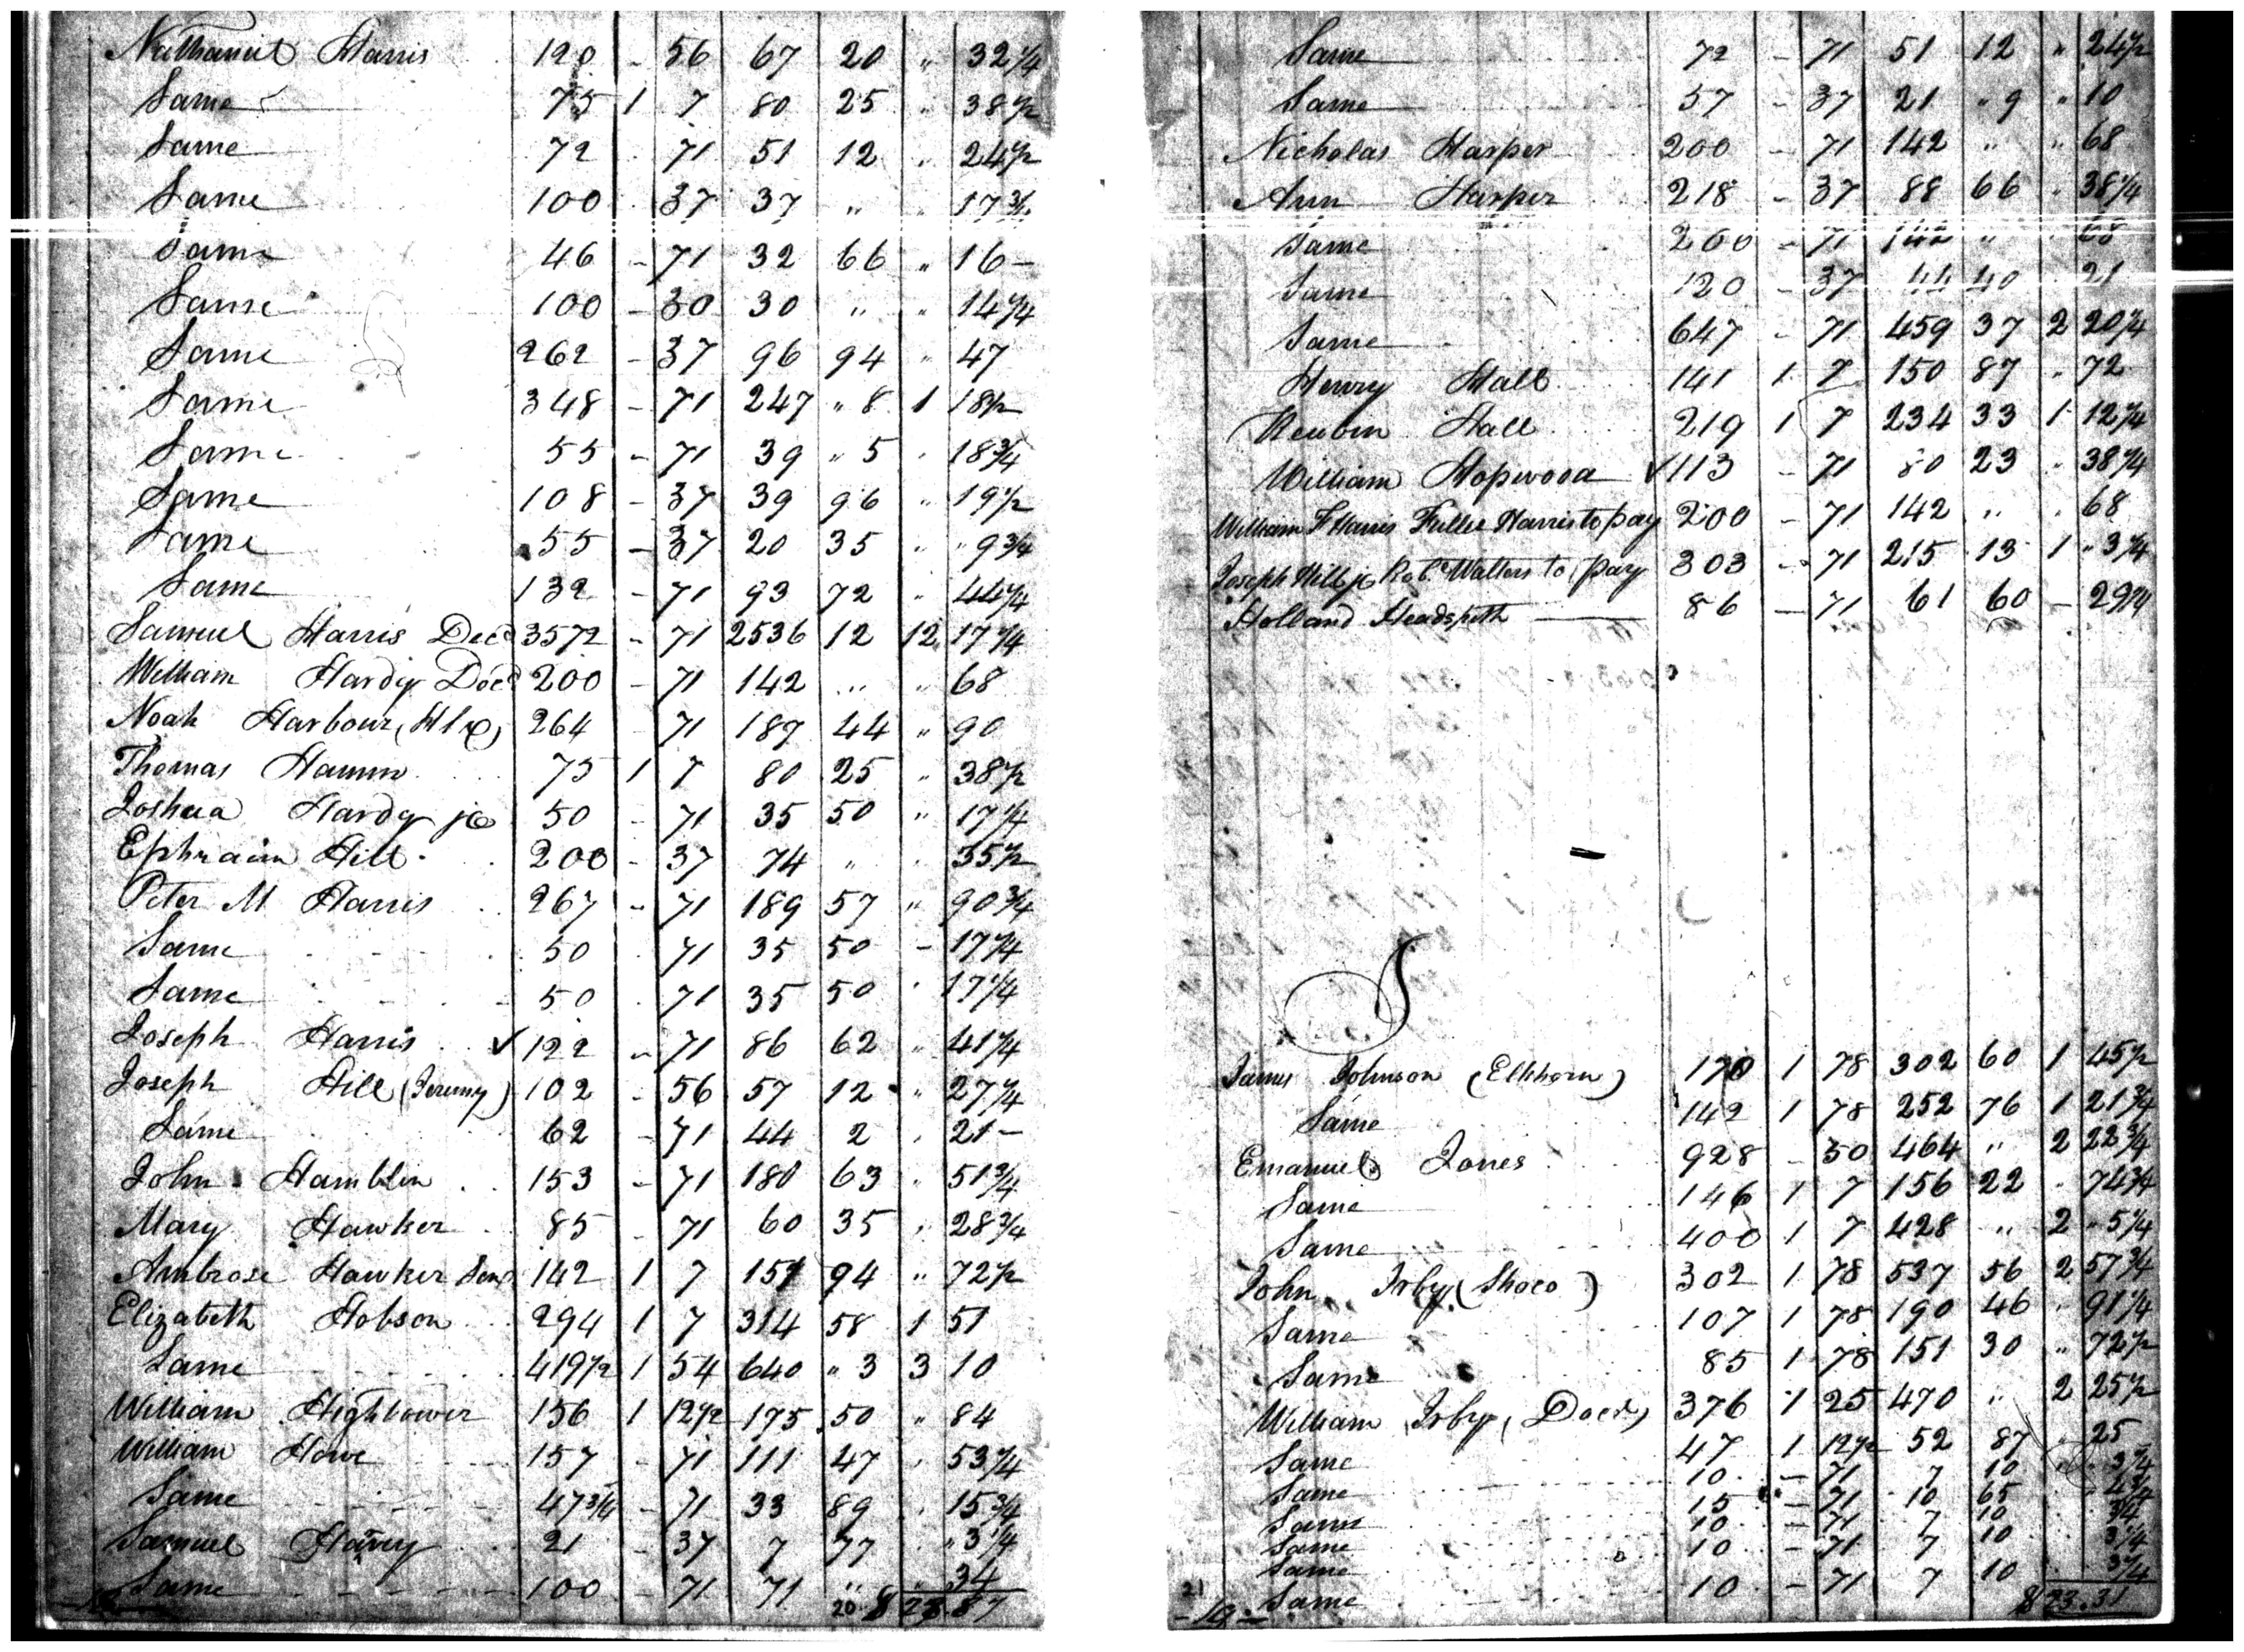 Nathaniel Harris 120 - 56 67 20 " 32 1/4
Same 75 1 7 80 25 " 38 1/2
Same 72 . 71 51 12 " 24 1/2
Same 100 . 37 37 " " 17 3/4
Same 46 - 71 32 66 " 16 -
Same 100 - 30 30 " " 14 1/4
Same 262 - 37 96 94 " 47
Same 348 - 71 247 " 8 1 18 1/2
Same 55 - 71 39 " 5 " 18 3/4
Same 108 - 37 39 96 " 19 1/2
Same 55 - 37 20 35 " " 9 3/4
Same 132 - 71 93 72 " 44 1/4
Samuel Harris Decd 3572 - 71 2536 12 12 17 1/4
William Hardy Decd 200 - 71 142 " " 68
Noah Harbour (Hlx) 264 71 187 44 " 90
Thomas Hamm 75 1 7 80 25 " 38 1/2
Joshua Hardy jr 50 - 71 35 50 " 17 1/4
Ephraim Hill 200 - 37 74 " " 35 1/2
Peter M Harris 267 - 71 189 57 " 90 3/4
Same 50 . 71 35 50 - 17 1/4
Same 50 . 71 35 50 " 17 1/4
Joseph Harris ✓ 122 - 71 86 62 " 41 1/4
Joseph Hill (Jeremy) 102 - 56 57 12 " 27 1/4
Same 62 - 71 44 2 " 21 -
John Hamblin 153 - 71 180 63 " 51 3/4
Mary Hawker 85 - 71 60 35 " 28 3/4
Ambrose Hawker Senr 142 1 7 151 94 " 72 1/2
Elizabeth Hobson 294 1 7 314 58 1 51
Same 419 1/2 1 54 640 " 3 3 10
William Hightower 156 1 12 1/2 175 50 " 84
William Howe 157 - 71 111 47 " 53 1/4
Same 47 3/4 - 71 33 89 " 15 3/4
Samuel Harvey 21 - 37 7 77 " " 3 1/4
Same 100 - 71 71 " " 34
20 $ 23.87
Same 72 - 71 51 12 " 24 1/2
Same 57 - 37 21 " 9 " 10
Nicholas Harper 200 - 71 142 " " 68
Ann Harper 218 - 37 88 66 " 38 1/4
Same 200 - 71 142 " 68
Same 120 - 37 44 40 21
Same 647 - 71 459 37 2 20 1/4
Henry Hall 141 1 7 150 87 " 72
Reubin Hall 219 1 7 234 33 1 12 1/4
William Hopwood ✓ 113 - 71 80 23 " 38 1/4
William F Harris Fuller Harris to pay 200 - 71 142 " " 68
Joseph Hill jr Robt Walters to pay 303 - 71 215 13 1 " 3 1/4
Holland Headspeth 86 - 71 61 60 - 29 1/4
J
James Johnson (Elkhorn) 170 1 78 302 60 1 45 1/2
Same 142 1 78 252 76 1 21 3/4
Emanuel Jones 928 - 50 464 " 2 22 3/4
Same 146 1 7 156 22 " 74 3/4
Same 400 1 7 428 " 2 " 5 1/4
John Irby (Shoco) 302 1 78 537 56 2 57 3/4
Same 107 1 78 190 46 " 91 1/4
Same 85 1 78 151 30 " 72 1/2
William Irby (Decd) 376 1 25 470 " 2 25 1/2
Same 47 1 12 1/2 52 87 " 25
Same 10 - 71 7 10 3 1/4
Same 15 - 71 10 65
Same 10 - 71 7 10
Same 10 - 71 7 10 3 1/4
Same
Same 10 - 71 7 10 3 1/4
21
$ 23.31